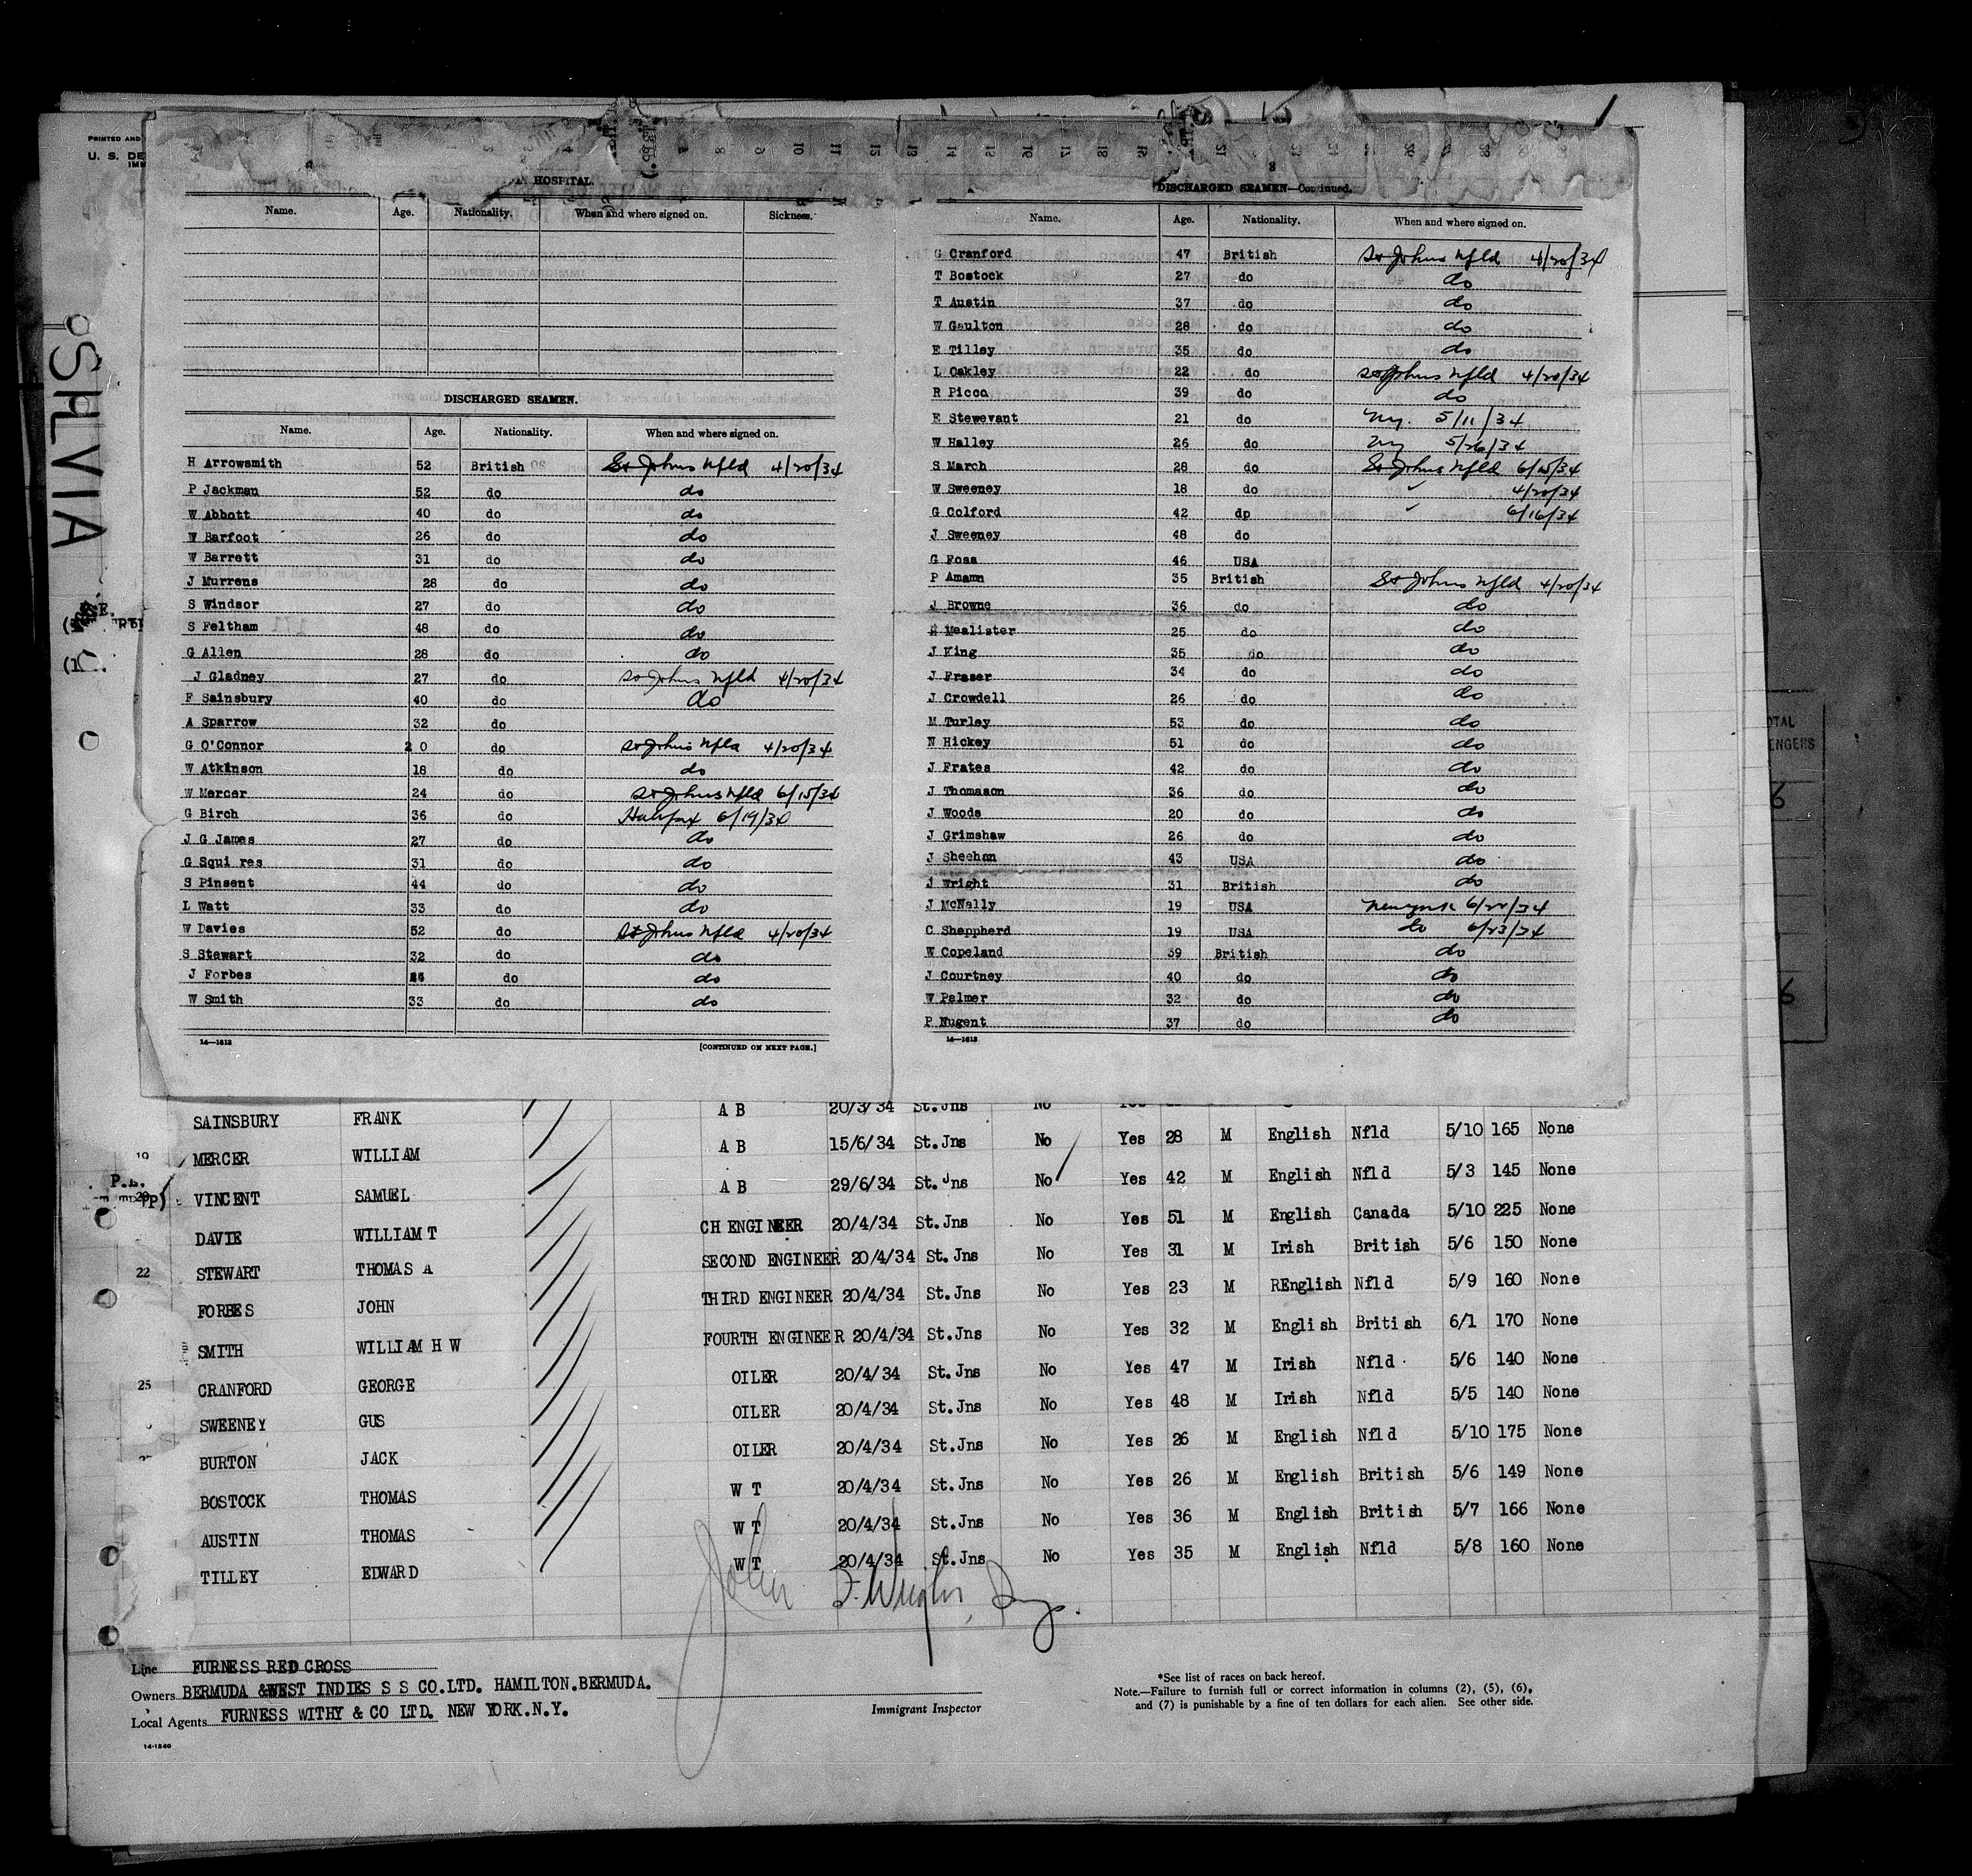 PRINTED AND
U. S. DE
OSILVIA
IN HOSPITAL.
Name. Age. Nationality. When and where signed on. Sickness.
DISCHARGED SEAMEN.
Name. Age. Nationality. When and where signed on.
H Arrowsmith 52 British St Johns Nfld 4/20/34
P Jackman 52 do do
W Abbott 40 do do
W Barfoot 26 do do
W Barrett 31 do do
J Murrens 28 do do
S Windsor 27 do do
S Feltham 48 do do
G Allen 28 do do
J Gladney 27 do St Johns Nfld 4/20/34
F Sainsbury 40 do do
A Sparrow 32 do
G O'Connor 20 do St Johns Nfld 4/20/34
W Atkinson 18 do do
W Mercer 24 do St Johns Nfld 6/15/34
G Birch 36 do Halifax 6/19/34
J G James 27 do do
G Squi res 31 do do
S Pinsent 44 do do
L Watt 33 do do
W Davies 52 do St Johns Nfld 4/20/34
S Stewart 32 do do
J Forbes do do
W Smith 33 do do
14—1618 [CONTINUED ON NEXT PAGE.]
DISCHARGED SEAMEN—Continued.
Name. Age. Nationality. When and where signed on.
G Cranford 47 British St Johns Nfld 4/20/34
T Bostock 27 do do
T Austin 37 do do
W Gaulton 28 do do
E Tilley 35 do do
L Oakley 22 do St Johns Nfld 4/20/34
R Picco 39 do do
E Stewevant 21 do NY. 5/11/34
W Halley 26 do NY 5/26/34
S March 28 do St Johns Nfld 6/15/34
W Sweeney 18 do ✓ 4/20/34
G Colford 42 dp ✓ 6/16/34
J Sweeney 48 do
G Foss 46 USA
P Amamn 35 British St Johns Nfld 4/20/34
J Browne 36 do do
Mcalister 25 do do
J King 35 do do
J Fraser 34 do do
J Crowdell 26 do do
M Turley 53 do do
N Hickey 51 do do
J Frates 42 do do
J Thomason 36 do do
J Woods 20 do do
J Grimshaw 26 do do
J Sheehan 43 USA do
J Wright 31 British do
J McNally 19 USA New York 6/22/34
C Sheppherd 19 USA do 6/23/34
W Copeland 39 British do
J Courtney 40 do do
W Palmer 32 do do
P Nugent 37 do do
14—1618
SAINSBURY FRANK A B 20/3/34 St.Jns No Yes
19 MERCER WILLIAM A B 15/6/34 St.Jns No Yes 28 M English Nfld 5/10 165 None
20 VINCENT SAMUEL A B 29/6/34 St.Jns No Yes 42 M English Nfld 5/3 145 None
DAVIE WILLIAM T CH ENGINEER 20/4/34 St.Jns No Yes 51 M English Canada 5/10 225 None
22 STEWART THOMAS A SECOND ENGINEER 20/4/34 St.Jns No Yes 31 M Irish British 5/6 150 None
FORBES JOHN THIRD ENGINEER 20/4/34 St.Jns No Yes 23 M REnglish Nfld 5/9 160 None
SMITH WILLIAM H W FOURTH ENGINEER 20/4/34 St.Jns No Yes 32 M English British 6/1 170 None
25 CRANFORD GEORGE OILER 20/4/34 St.Jns No Yes 47 M Irish Nfld 5/6 140 None
SWEENEY GUS OILER 20/4/34 St.Jns No Yes 48 M Irish Nfld 5/5 140 None
BURTON JACK OILER 20/4/34 St.Jns No Yes 26 M English Nfld 5/10 175 None
BOSTOCK THOMAS W T 20/4/34 St.Jns No Yes 26 M English British 5/6 149 None
AUSTIN THOMAS W T 20/4/34 St.Jns No Yes 36 M English British 5/7 166 None
TILLEY EDWARD W T 20/4/34 St.Jns No Yes 35 M English Nfld 5/8 160 None
John F. Wright, Insp.
Line FURNESS RED CROSS
Owners BERMUDA & WEST INDIES S S CO.LTD. HAMILTON.BERMUDA.
Local Agents FURNESS WITHY & CO LTD. NEW YORK.N.Y.
Immigrant Inspector
*See list of races on back hereof.
Note.—Failure to furnish full or correct information in columns (2), (5), (6),
and (7) is punishable by a fine of ten dollars for each alien. See other side.
14-1240